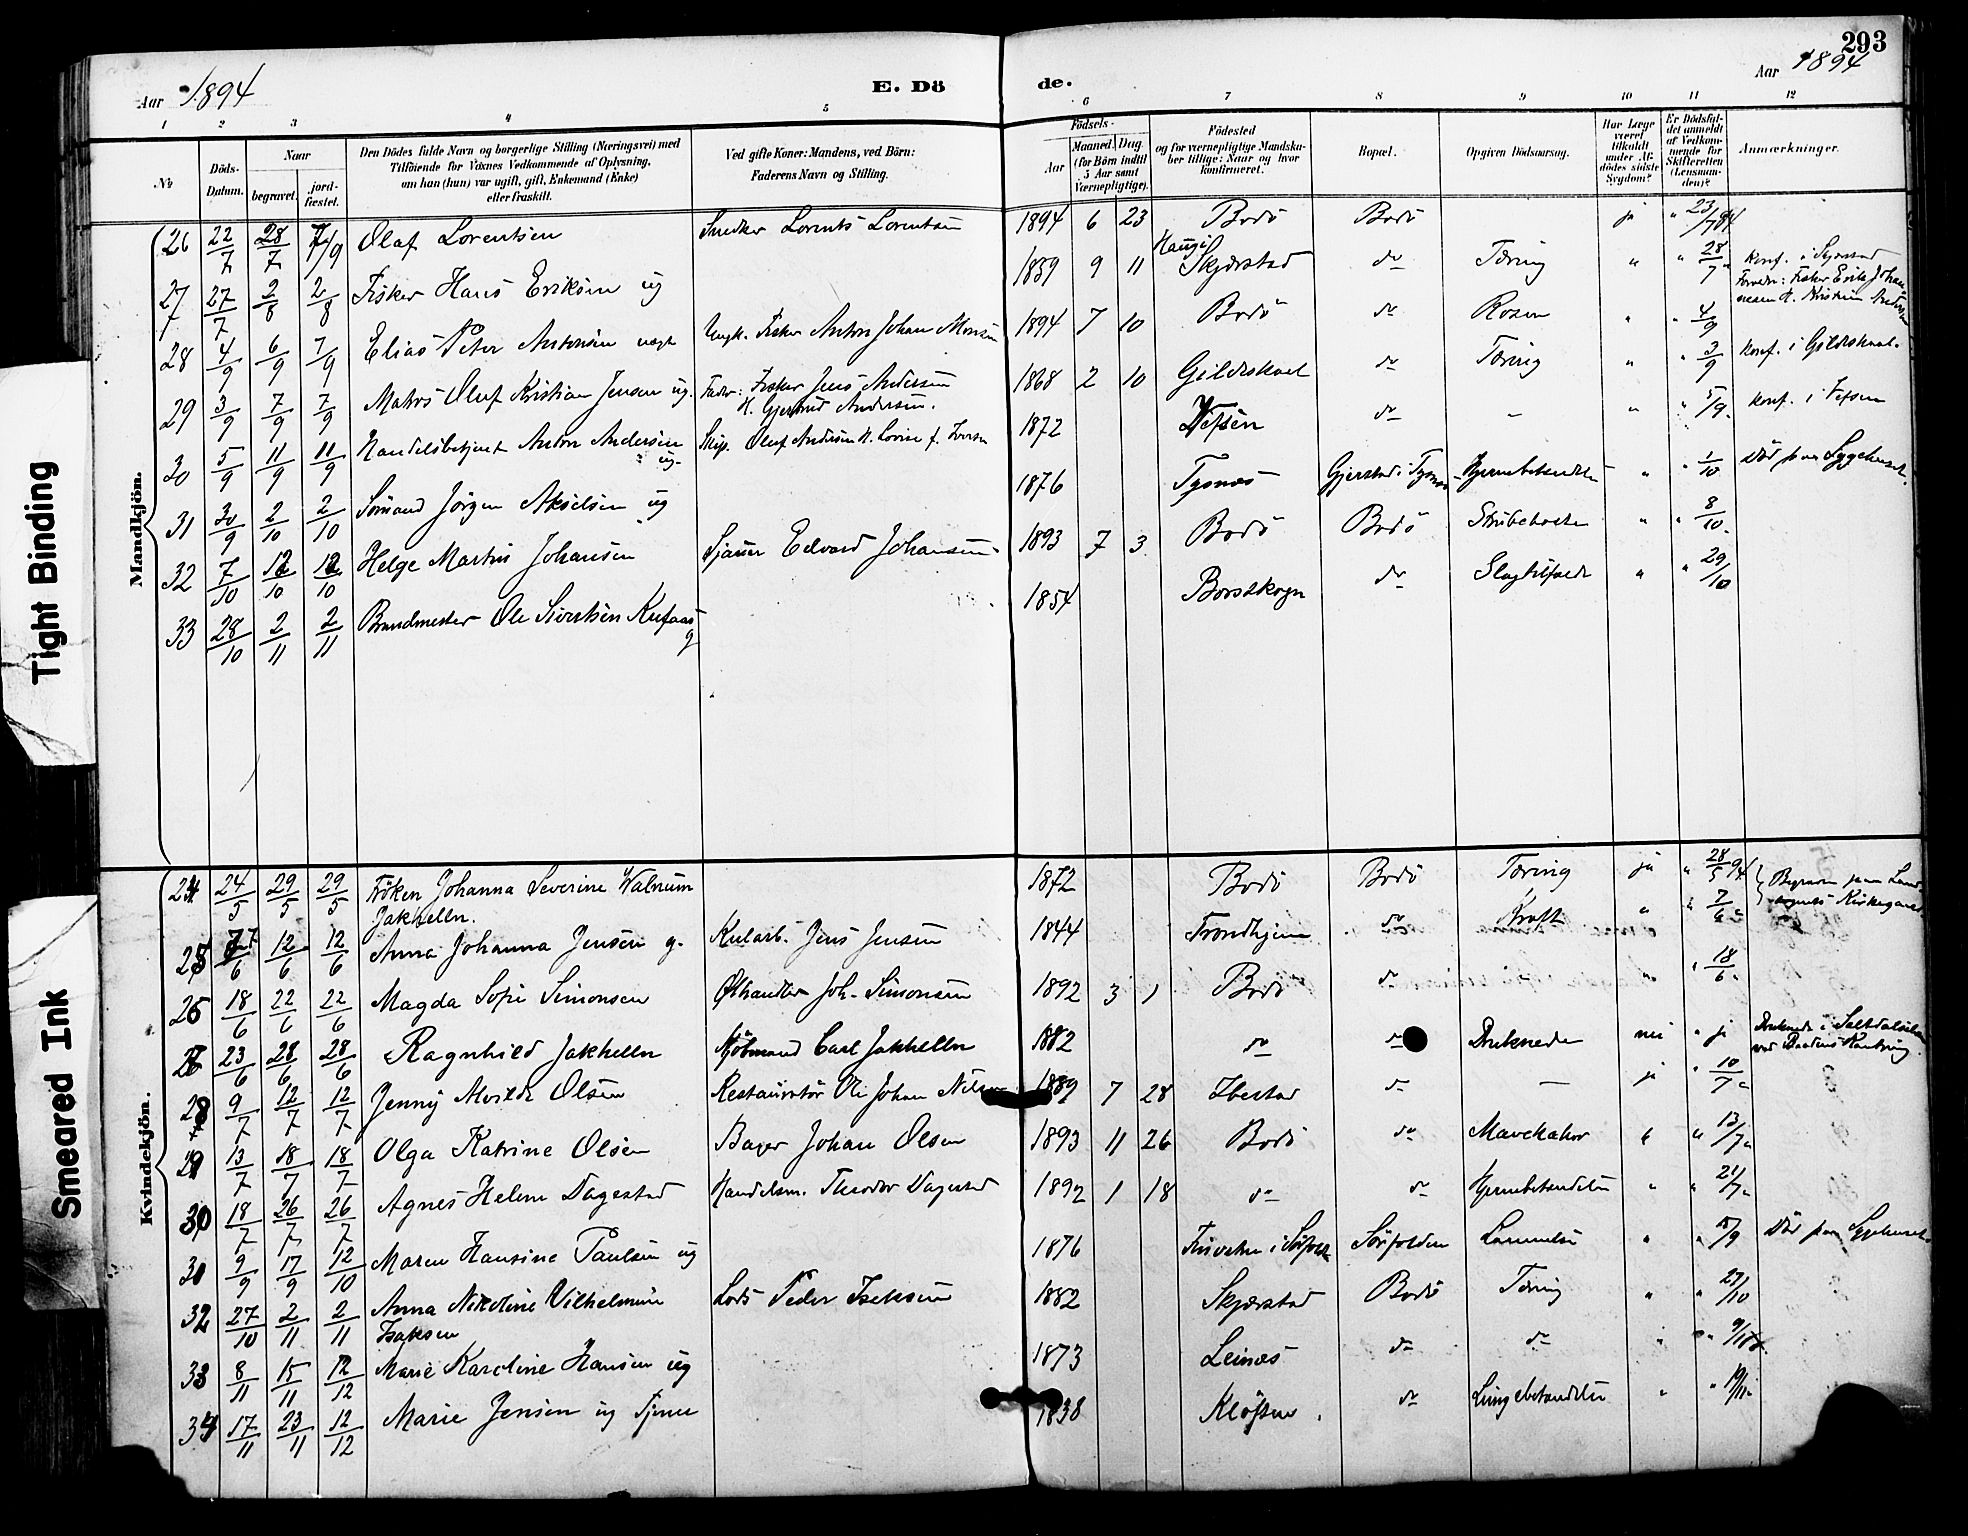 293
Aar 1894
E. Dö
de.
Aar 1894
1 2 3 4 5 6 7 8 9 10 11 12
No
Döds-Datum.
Naar
begravet.
jordfæstet.
Den Dödes fulde Navn og borgerlige Stilling (Næringsvei) med
Tilföiende for Voxnes Vedkommende af Oplysning,
om han (hun) var ugift, gift, Enkemand (Enke)
eller fraskilt.
Ved gifte Koner: Mandens, ved Börn:
Faderens Navn og Stilling.
Födsels-
Aar
Maaned. Dag
(for Börn indtil
5 Aar samt
Værnepligtige).
Födested
og for værnepligtige Mandskaber tillige: Naar og hvor
konfirmeret.
Bopæl.
Opgiven Dödsaarsag.
Har Læge
været
tilkaldt
under Afdödes sidste
Sygdom?
Er Dödsfaldet anmeldt
af Vedkommende for
Skifteretten
(Lensmanden)?
Anmærkninger.
Mandkjön.
26 22/7 28/7 7/9 Olaf Lorentsen Snedker Lorents Lorentsen 1894 6 23 Bodö Bodö ja " 23/7 94
27 27/7 2/8 2/8 Fisker Hans Eriksen ug 1859 9 11 Skjerstad do Tæring " " 28/7 Konf. i Skjerstad
28 4/9 6/9 7/9 Elias Peter Antonsen uægt Ungk. Fisker Anton Johan Monsen 1894 7 10 Bodö do Rosen " " 4/9
29 3/9 7/9 7/9 Matros Oluf Kristian Jensen ug. Fader: Fisker Jens Andersen 1868 2 10 Gildeskaal do Tæring " " 3/9 Konf. i Gildeskaal.
H. Gjertrud Andersen.
30 5/9 11/9 11/9 Handelsbetjent Anton Andersen ug. Skip. Oluf Andersen H. Lovise f. Iversen 1872 Vefsen do - " " 5/9. Konf. i Vefsen
31 30/9 2/10 2/10 Sömand Jörgen Akselsen ug 1876 Tysnes Gjerstad i Tysnes Hjernebetændelse " " 1/10 Död paa Sygehuset.
32 7/10 12/10 12/10 Helge Martin Johansen Sjauer Edvard Johansen 1893 7 3 Bodö Bodö Strubehoste " " 8/10.
33 28/10 2/11 2/11 Brandmester Ole Sivertsen g 1854 Borsskogn do Slagtilfælde " " 29/10
Kvindekjön.
24 24/5 29/5 29/5 Fröken Johanna Severine Walnum 1872 Bodö Bodö Tæring ja " 28/5 94
Jakhelln.
25 7/6 12/6 12/6 Anna Johanna Jensen g. Kularb. Jens Jensen 1844 Trondhjem do Kræft " " 7/6
26 18/6 22/6 22/6 Magda Sofie Simonsen Ølhandler Joh. Simonsen 1892 3 1 Bodö do " " 18/6.
27 23/6 28/6 28/6 Ragnhild Jakhelln Kjöbmand Carl Jakhelln 1882 do do Druknede nei " ja
28 9/7 12/7 12/7 Jenny Alvilde Olsen Restauratör Ole Johan 1889 7 28 Ibestad do - ja " 10/7
29 13/7 18/7 18/7 Olga Katrine Olsen Bager Johan Olsen 1893 11 26 Bodö do Mavekatar " " 13/7
30 18/7 26/7 26/7 Agnes Helene Dagestad Handelsm. Theodor Dagestad 1892 1 18 do do Hjernebetændelse " " 21/7
31 9/9 17/9 12/10 Maren Hansine Paulsen ug 1876 Sörfolden " " Död paa Sygehuset.
32 27/10 2/11 2/11 Anna Nikoline Vilhelmine Lods Peder Isaksen 1882 Skjerstad Bodö Tæring " " 27/10
Isaksen
33 8/11 15/11 12/12 Marie Karoline Hansen ug 1873 Leines do do " "
34 17/11 23/11 12/12 Marie Jensen ug Tjener 1838 Klöfsen do Lungebetændelse " " 19/11
Tight Binding
Smeared Ink